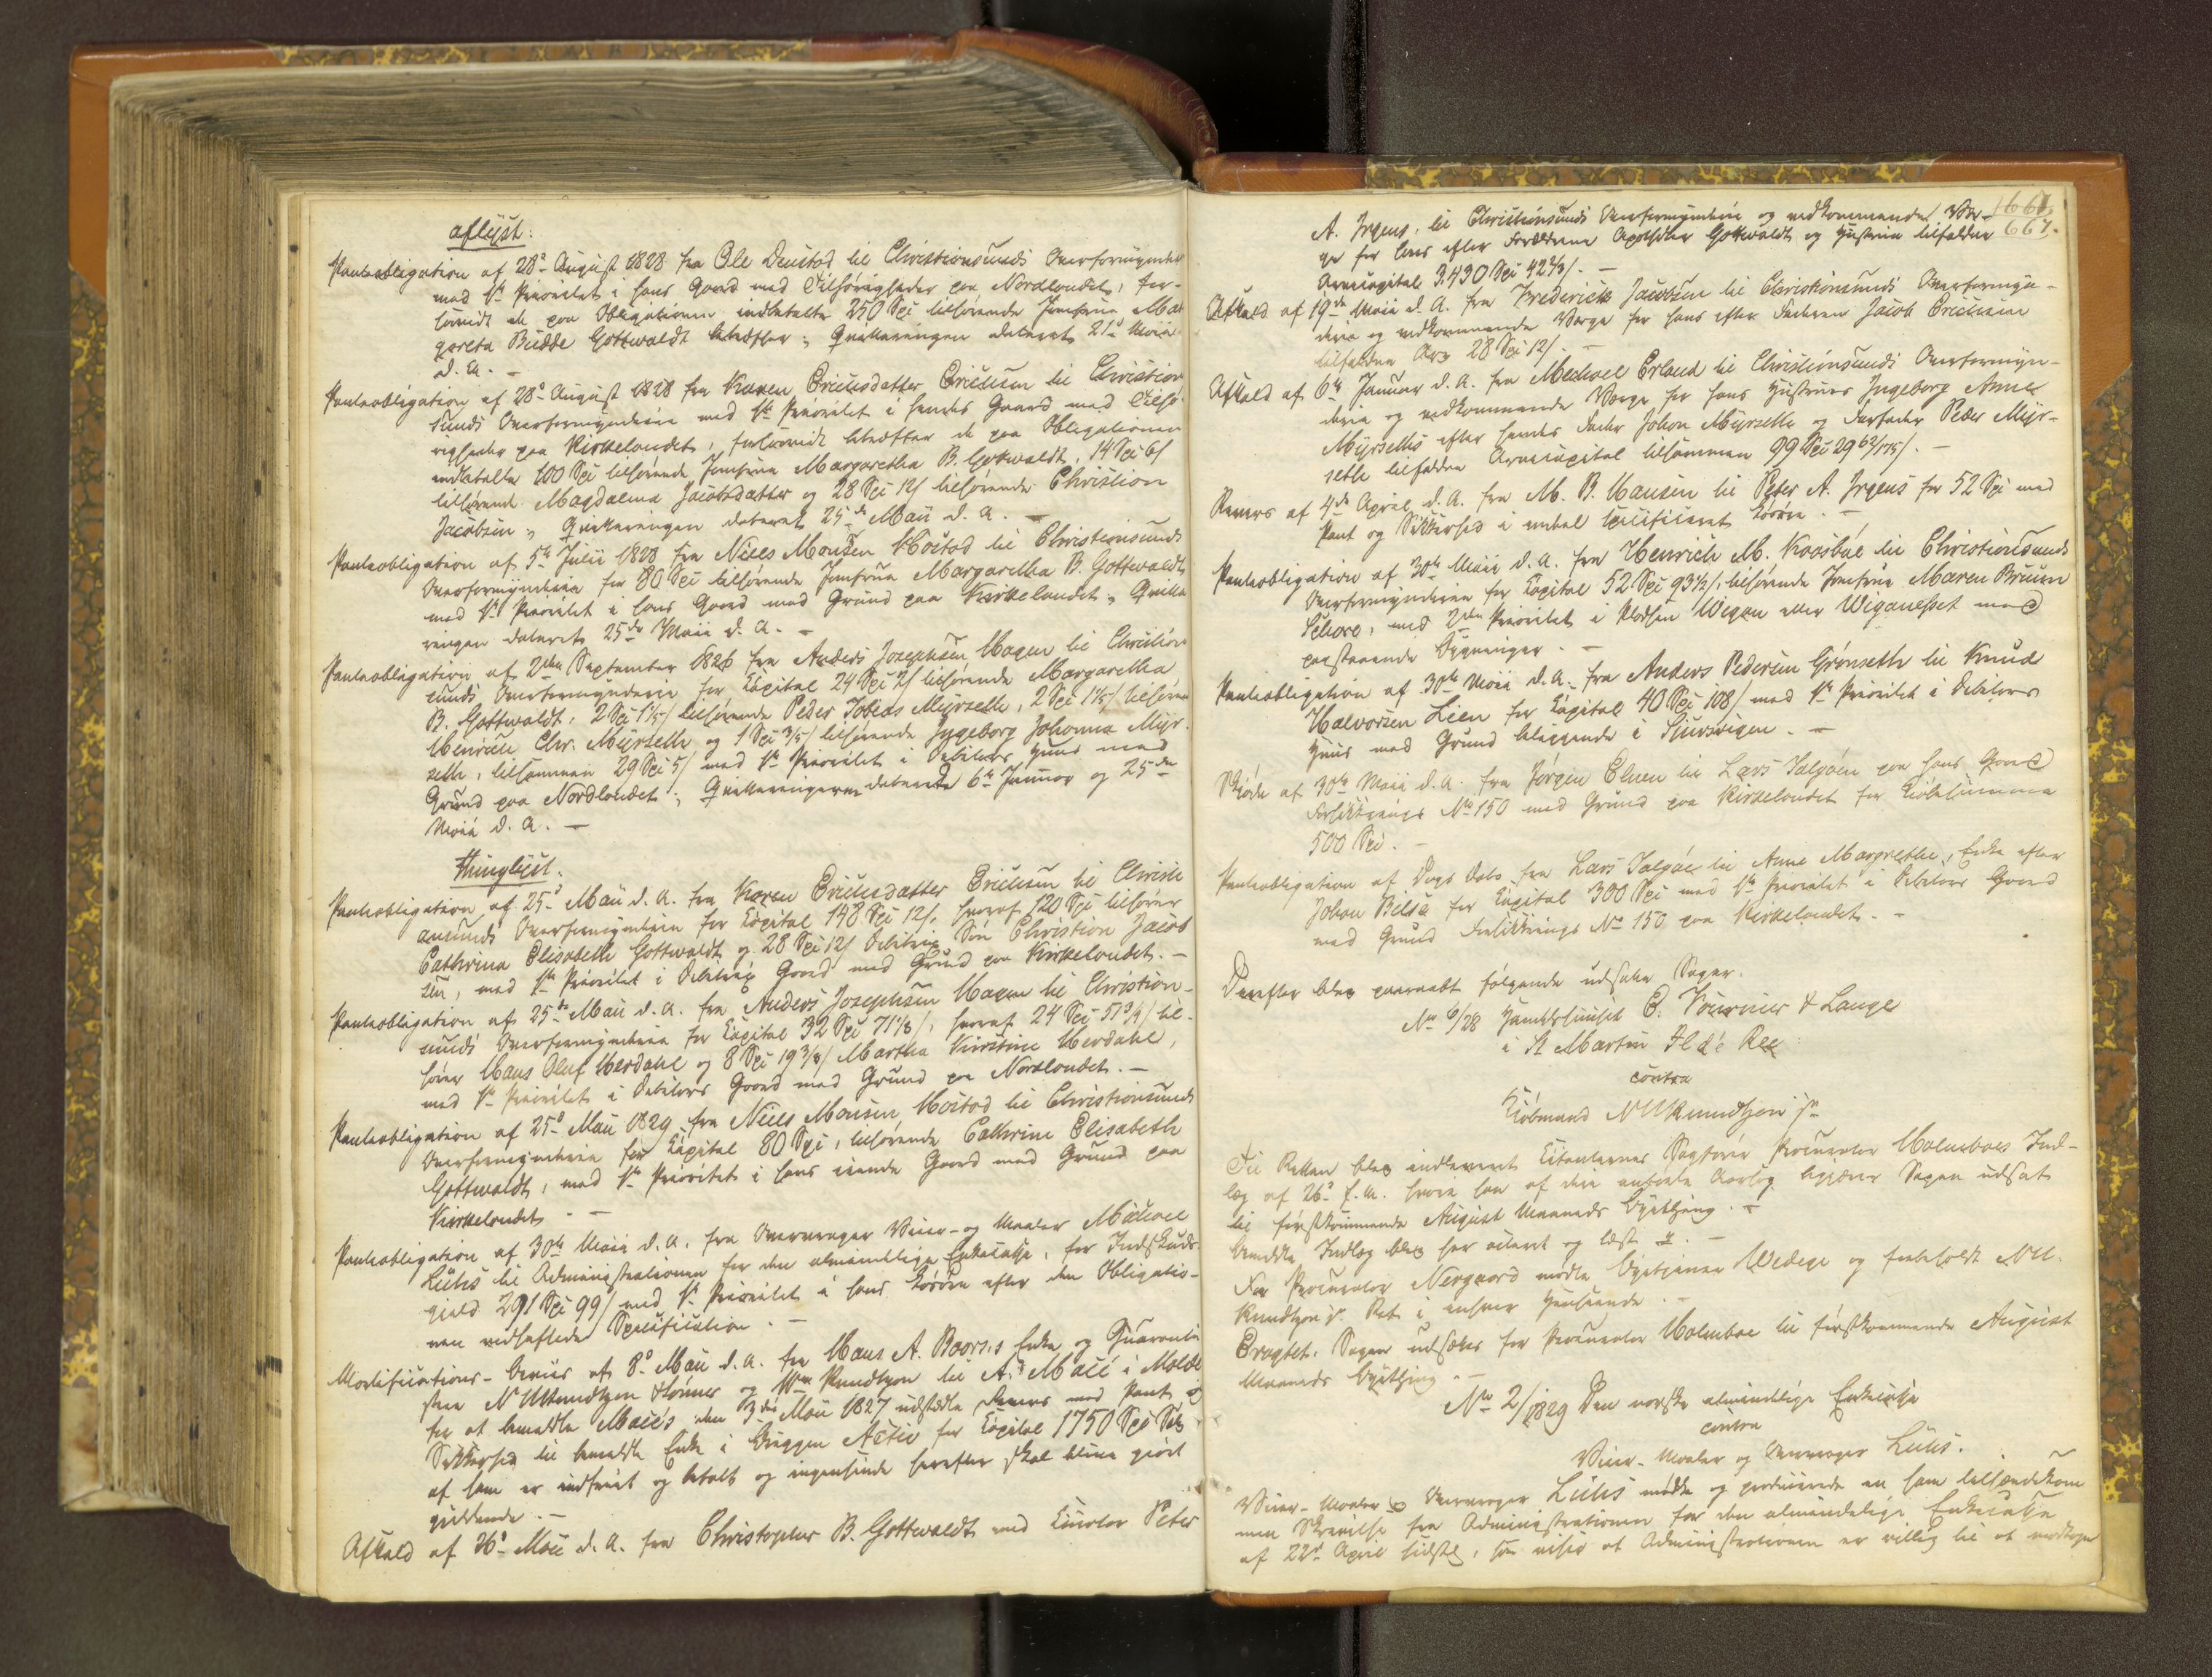 aflyst:
Panteobligation af 28de August 1828 fra Ole Deustad til Christiansunds Overformynderi
med 1ste Prioritet i hans Gaard med Tilhørigheder paa Nordlandet, for-
saavidt de paa Obligationen indbetalte 250 Spd tilhørende Jomfrue Mar
gareta Budde Gottwaldt betræffer; Qvitteringen dateret 21de Maii
d. A. –
Panteobligation af 28de August 1828 fra Karen Erichsdatter Erichsen til Christian
sunds Overformynderie med 1ste Prioritet i hendes Gaard med Tilhø-
righeder paa Kirkelandet, forsaavidt betræffer de paa Obligationen
indbetalte 100 Spd tilhørende Jomfrue Margaretha B. Gottwaldt, 14 Spd 6/
tilhørende Magdalena Jacobsdatter og 28 Spd 12/ tilhørende Christian
Jacobsen; Qvitteringen dateret 25de Maii d. A. –
Panteobligation af 5te Julii 1828 fra Niels Monsen Mostad til Christiansunds
Overformynderie for 80 Spd tilhørende Jomfrue Margaretha B. Gottwaldt
med 1ste Prioritet i hans Gaard med Grund paa Kirkelandet; Qvitte
ringen dateret 25de Maii d. A. –
Panteobligation af 2den September 1826 fra Anders Josephsen Hagen til Christian
sunds Overformynderie for Capital 24 Spd 2/ tilhørende Margaretha
B. Gottwaldt, 2 Spd 1 1/5/ tilhørende Peder Tobias Myrseth, 2 Spd 1 1/5/ tilhøren
Henrich Chr. Myrseth og 1 Spd 3/5/ tilhørende Ingeborg Johanna Myr-
seth, tilsammen 29 Spd 5/ med 1ste Prioritet i Debitors Huus med
Grund paa Nordlandet; Qvitteringerne daterede 6te Januar og 25de
Maii d. A. –
Thinglyst.
Panteobligation af 25de Maii d. A. fra Karen Erichsdatter Erichsen til Christi
ansunds Overformynderie for Capital 148 Spd 12/, hvoraf 120 Spd tilhører
Cathrina Elisabeth Gottwaldt og 28 Spd 12/ Debitrix Søn Christian Jacob
sen, med 1ste Prioritet i Debitrix Gaard med Grund paa Kirkelandet. –
Panteobligation af 25de Maii d. A. fra Anders Josephsen Hagen til Christian-
sunds Overformynderie for Capital 32 Spd 71 1/8/, hvoraf 24 Spd 51 3/4/ til-
hører Hans Oluf Herdahl og 8 Spd 19 3/8/ Martha Kirstine Herdahl,
med 1ste Prioritet i Debitors Gaard med Grund paa Nordlandet. –
Panteobligation af 25de Maii 1829 fra Niels Monsen Mostad til Christiansunds
Overformynderie for Capital 80 Spd, tilhørende Cathrine Elisabeth
Gottwaldt, med 1ste Prioritet i hans iiende Gaard med Grund paa
Kirkelandet. –
Panteobligation af 30te Maii d. A. fra Overvrager Veier- og Maaler Michael
Lühs til Administrationen for den almindelige Enkecasse, for Indskuds-
gjeld 291 Spd 99/ med 1ste Prioritet i hans Løsøre efter den Obligatio-
nen vedhæftede Specification. –
Mortifications-Beviis af 8de Maii d. A. fra Hans A. Boors's Enke og Guaranti
sterne N H Knudtzon og Knudtzon til A. Macé i Molde
for at bemeldte Macés den 3die Maii 1827 udstædte Revers med Pant og
Sikkerhed til bemeldte Enke i Briggen Activ for Capital 1750 Spd Sølv
af ham er indfriet og betalt og ingensinde herefter skal blive giort
gieldende. –
Afkald af 26de Maii d. A. fra Christopher B. Gottwaldt med Curator Peter
1661
667.
A. Irgens, til Christiansunds Overformynderie og vedkommende Vær-
ge for hans efter Forældrene Apotheker Gottwaldt og Hustrue tilfaldne
Arvecapital 3,430 Spd 42 2/3/. –
Afkald af 19de Maii d. A. fra Frederick Jacobsen til Christiansunds Overformyn-
derie og vedkommende Værge for hans efter Faderen Jacob Erichsen
tilfaldne Arv 28 Spd 12/. –
Afkald af 6te Januar d. A. fra Mechael Erland til Christiansunds Overformyn-
derie og vedkommende Værge for hans Hustrues Ingeborg Anne
Myrseths efter hendes Fader Johan Myrseth og Farfader Peder Myr-
seth tilfaldne Arvecapital tilsammen 99 Spd 29 62/175/. –
Revers af 4de April d. A. fra M. B. Hansen til Peter A. Irgens for 52 Spd med
Pant og Sikkerhed i endeel specificeret Løsøre. –
Panteobligation af 30te Maii d. A. fra Henrich M. Roosbøe til Christiansunds
Overformynderie for Capital 52 Spd 93 1/2/, tilhørende Jomfrue Maren Bruun
Schare, med 2den Prioritet i Pladsen Vigan eller Viganesset med
paastaaende Bygninger. –
Panteobligation af 30te Maii d. A. fra Anders Pedersen Grønseth til Knud
Halvorsen Lien for Capital 40 Spd 108/ med 1ste Prioritet i Debitors
Huus med Grund beliggende i Sjursvigen. –
Skjøde af 30te Maii d. A. fra Jørgen Elnen til Lars Talgøen paa hans Gaard
Forsikkrings No 150 med Grund paa Kirkelandet for Kiøbesumma
500 Spd. –
Panteobligation af Dags Dato fra Lars Talgøe til Anne Margrethe, Enke efter
Johan Bilsø for Capital 300 Spd med 1ste Prioritet i Debitors Gaard
med Grund Forsikkrings No 150 paa Kirkelandet. –
Derefter blev paaraabt følgende udsatte Sager.
No 6/28 Handelshuuset E. Fournier & Lange
i St Martin Ile de Ree
contra
Kiøbmand N H Knudtzon jr
Til Retten blev indleveret Citanternes Sagfører Procurator Holmboes Ind-
læg af 26de f. M. hvori han af deri anførte Aarsag begjærer Sagen udsat
til førstkommende August Maaneds Bythjing. –
Bemeldte Indlæg blev her acteret og læst. –
For Procurator Nergaard mødte Bytjener Wedege og forbeholdt N H.
Knudtzon jr Ret i enhver Henseende. –
Eragtet. Sagen udsættes for Procurator Holmboe til førstkommende August
Maaneds Bything. –
No 2/1829 Den norske almindelige Enkecasse
contra
Veier- Maaler og Overvrager Lühs.
Veier- Maaler og Overvrager Lühs mødte og producerede en ham tilhændekom
men Skrivelse fra Administrationen for den almindelige Enkecasse
af 22de April sidstl., som viser at Administrationen er villig til at modtage